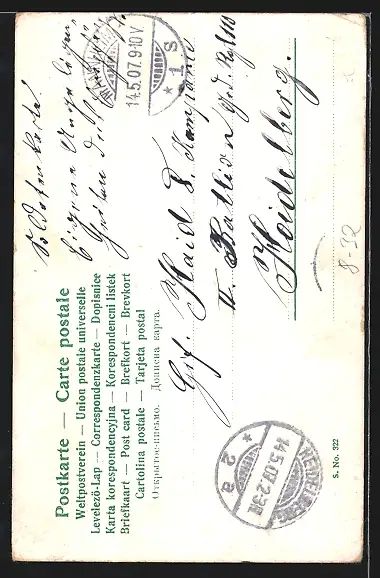 Postkarte — Carte postale
Weltpostverein — Union postale universelle
Levelező-Lap — Correspondenzkarte — Dopisnice
Karta korespondencyjna — Korespondencni listek
Briefkaart — Post card — Brefkort — Brevkort
Cartolina postale — Tarjeta postal
Открытое письмо. Дописна карта.
Soldatenkarte!
Eigene Angelegen-
14.5.07.9-10V.
* 1 S
Gef. Haid 8. Kompanie
II. Batllion Gr. Rg. 110
Heidelberg.
8-32
HEIDELBERG
14.5.07.2-3N.
* 2 a
S. No. 322